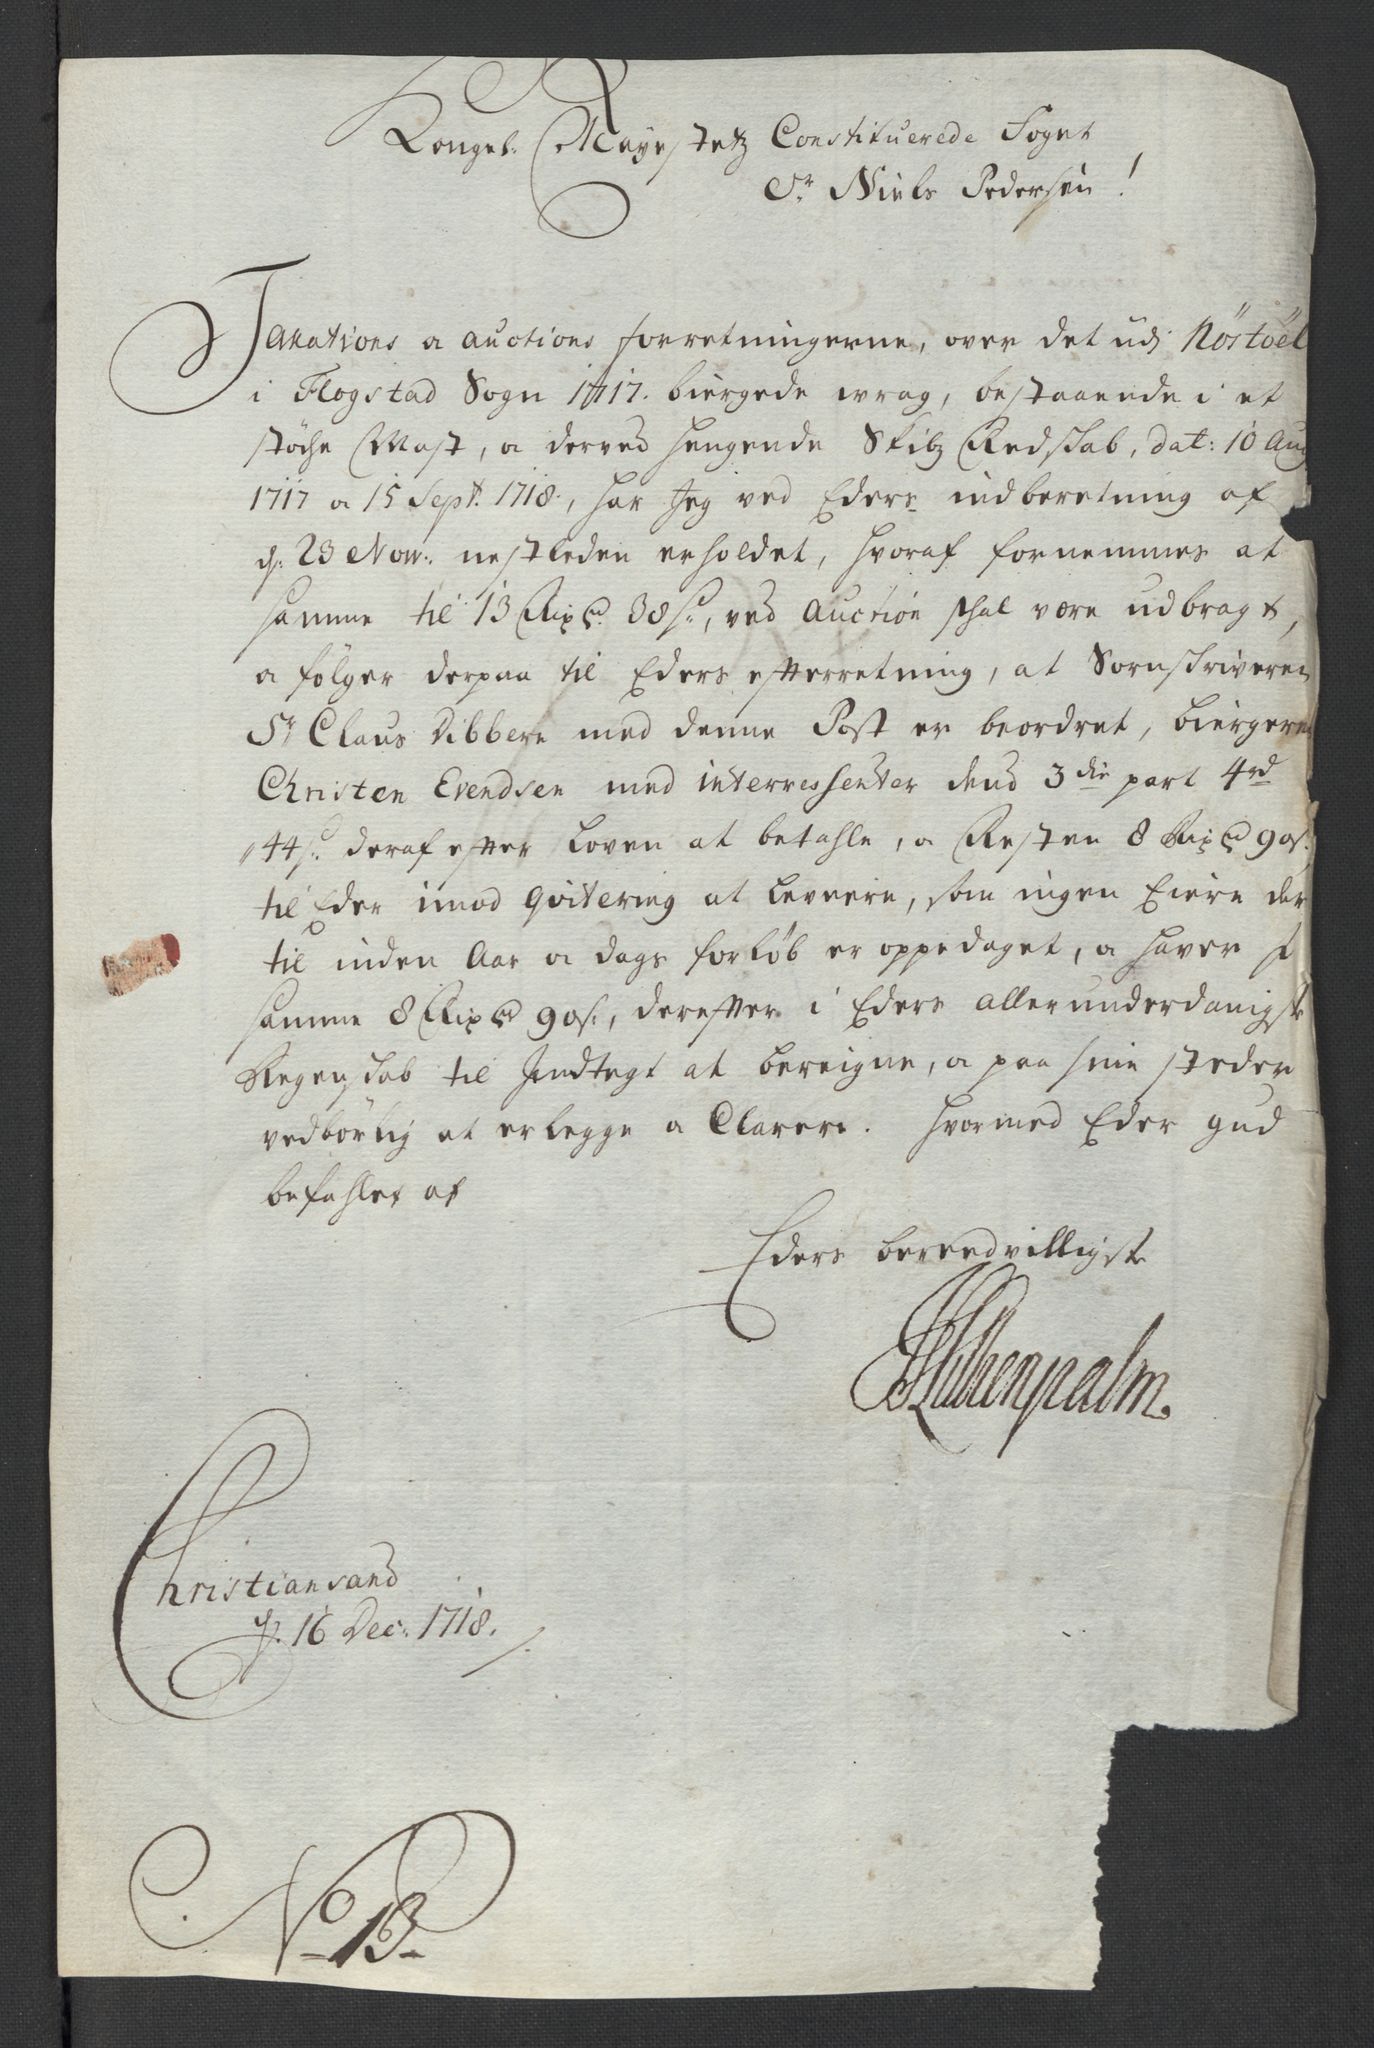 Kongel: Mayestetz Constituerede Foget
Sr Niels Pedersen!
Taxations a auctions forretningerne, over det udj Röstöel
i Flogstad Sogn 1717. biergede wrag, bestaaende i et
stöche Mast, a derved hengende Skibz Redskab, dat: 10 Aug
1717 a 15 Sept. 1718, har Jeg ved Eders indberetning af
d: 23 Nov: nestleden erholdet, hvoraf fornemmes at
samme til 13 Rixd. 38 s:, ved Auction schal være udbragt,
a fölger derpaa til Eders efterretning, at Sornskriveren
Sr Claus Dibbern med denne Post er beordret, biergeren
Christen Evendsen med interressenter deres 3die part 4rd
44 s: deraf efter Loven at betahle, a Resten 8 Rixd 90 s:
til Eder imod Qvitering at Levere, som ingen Eiere der
til inden Aar a dags forlöb er oppedaget, a haver I
samme 8 Rixd 90 s:, derefter i Eders allerunderdanigste
Regenskab til Indtegt at bereigne, a paa sine steder
vedbörlig at erlegge a Clarere. Hvormed Eder gud
befahlet af
Eders beredvilligste
Lillienpalm.
Christiansand
d. 16 Dec: 1718.
No 13